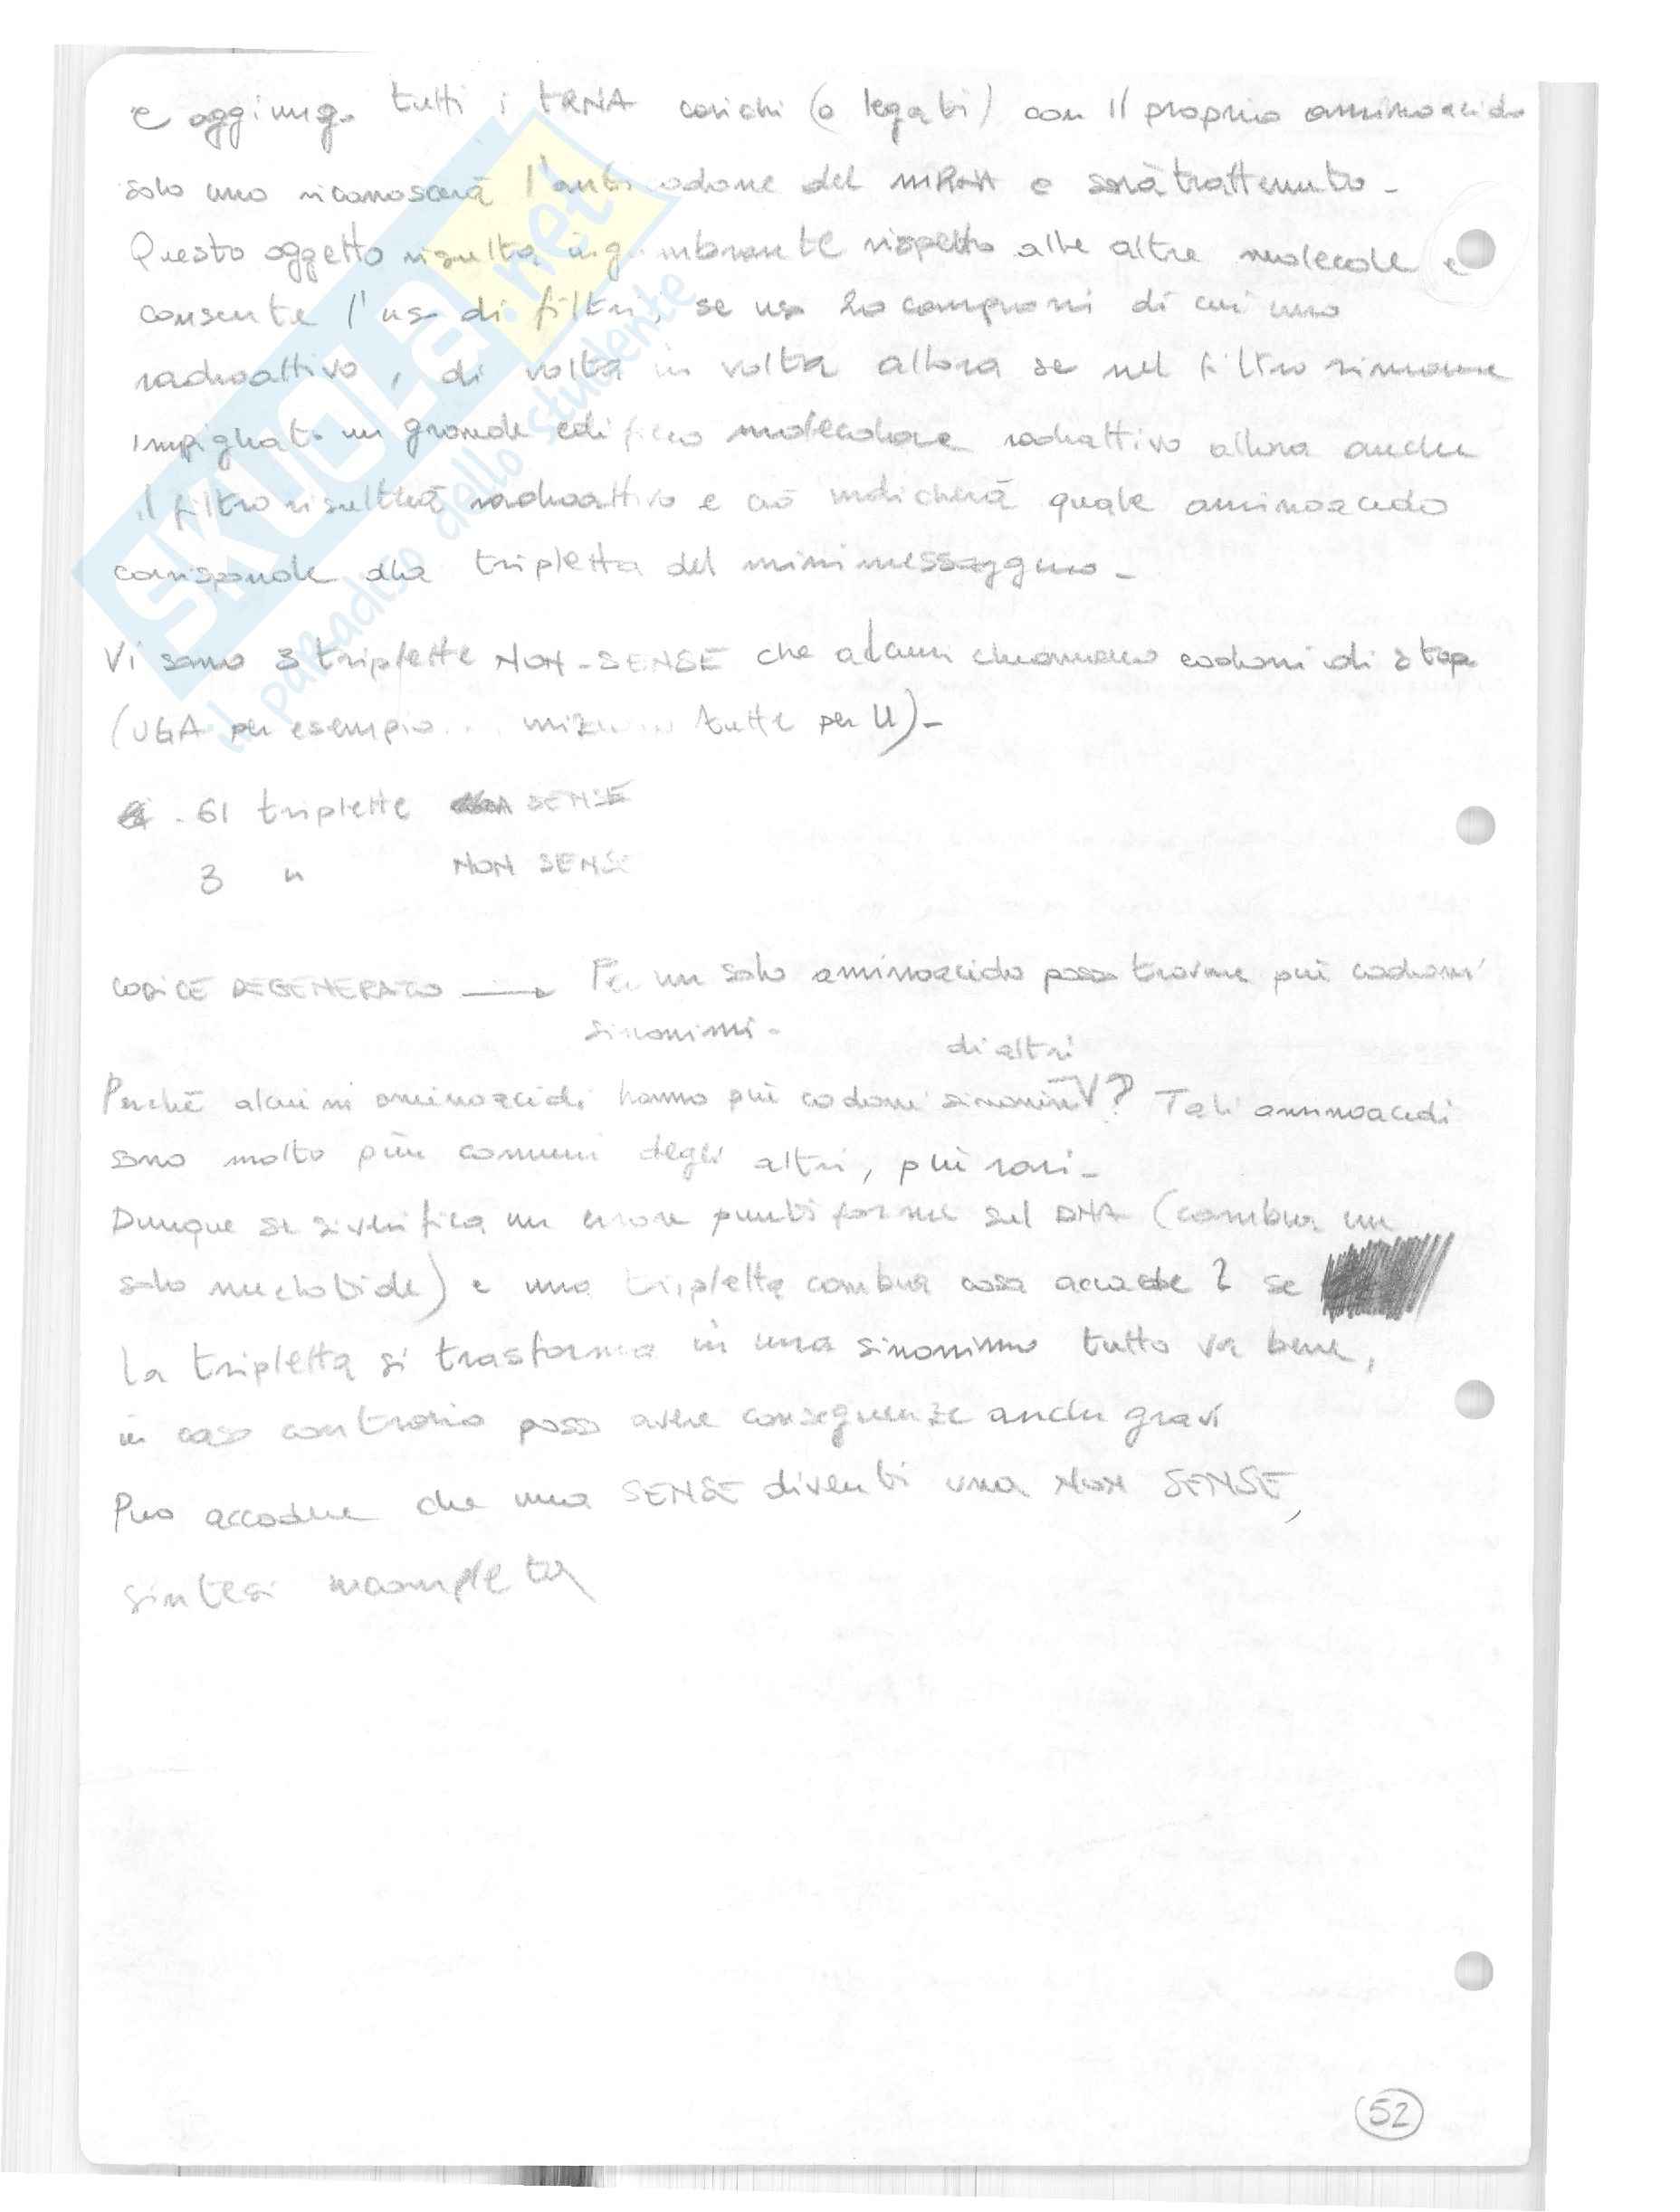 e aggiungo tutti i tRNA carichi (o legati) con il proprio aminoacido
solo uno riconoscerà l'anticodone del mRNA e sarà trattenuto -
Questo oggetto risulta ingombrante rispetto alle altre molecole e
consente l'uso di filtri, se uso 20 campioni di cui uno
radioattivo, di volta in volta allora se nel filtro rimane
impigliato un grande edificio molecolare radiattivo allora anche
il filtro risulterà radioattivo e ciò indicherà quale aminoacido
corrisponde alla tripletta del minimessaggero -
Vi sono 3 triplette NON-SENSE che alcuni chiamano codoni di stop
(UGA per esempio ... tutte per U) -
. 61 triplette SENSE
3 " NON SENSE
CODICE DEGENERATO → Per un solo aminoacido posso trovare più codoni
sinonimi -
di altri
Perché alcuni aminoacidi hanno più codoni sinonimi V? Tali aminoacidi
sono molto più comuni degli altri, più rari -
Dunque se si verifica un errore puntiforme sul DNA (cambia un
solo nucleotide) e una tripletta cambia cosa accade? se
la tripletta si trasforma in una sinonimo tutto va bene,
in caso contrario posso avere conseguenze anche gravi
Può accadere che una SENSE diventi una NON SENSE,
sintesi incompleta
52
SKUOLA.net
il paradiso dello studente